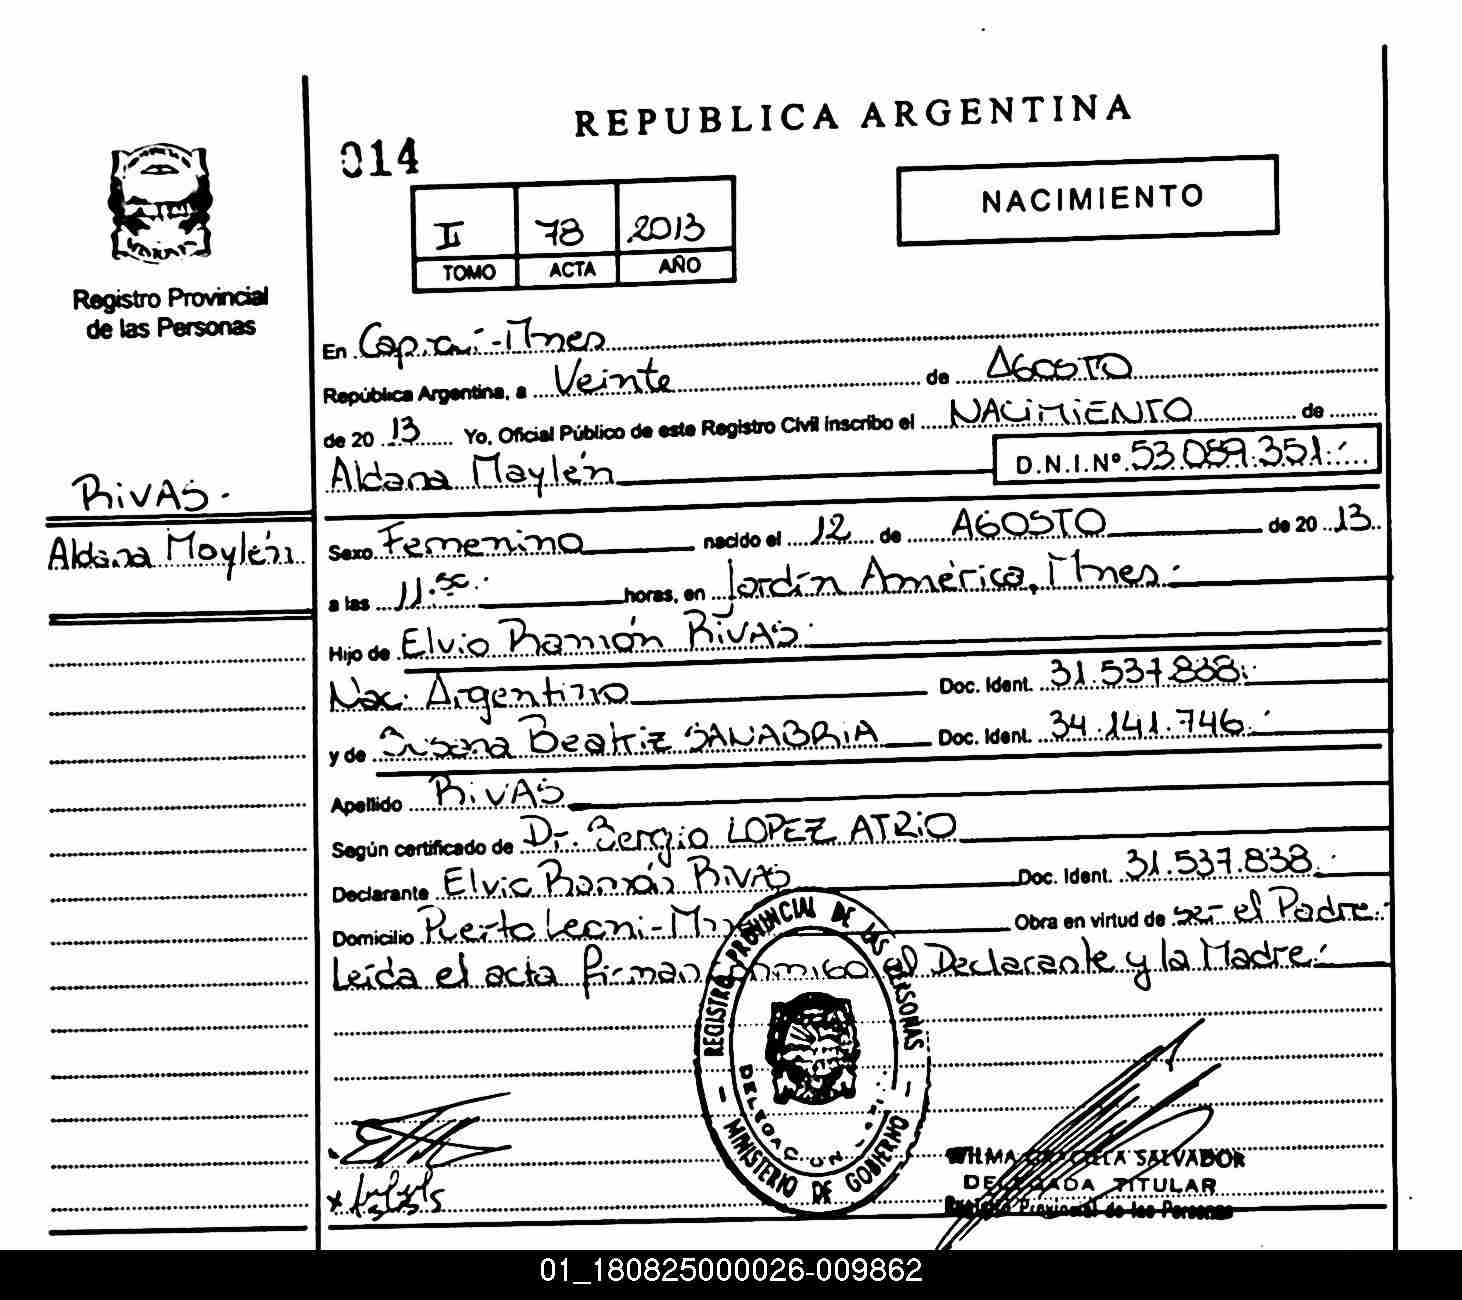 REPUBLICA ARGENTINA
014
NACIMIENTO
II 78 2013
TOMO ACTA AÑO
Registro Provincial
de las Personas
En Capioví-Mnes
República Argentina, a Veinte de AGOSTO
de 20 13 Yo, Oficial Público de este Registro Civil inscribo el NACIMIENTO de
Aldana Maylén D.N.I.Nº 53.059.351.-
RIVAS.
Aldana Maylén
Sexo Femenino nacido el 12 de AGOSTO de 20 13
a las 11.50. horas, en Jardín América, Mnes.-
Hijo de Elvio Ramón RIVAS.
Nac. Argentino Doc. Ident. 31.537.838.-
y de Susana Beatriz SANABRIA Doc. Ident. 34.141.746.-
Apellido RIVAS
Según certificado de Dr. Sergio LOPEZ ATRIO
Declarante Elvio Ramón RIVAS Doc. Ident. 31.537.838.-
Domicilio Puerto Leoni- Obra en virtud de ser el Padre.-
Leída el acta firman conmigo el Declarante y la Madre.-
REGISTRO PROVINCIAL DE LAS PERSONAS
MINISTERIO DE GOBIERNO
WILMA GRACIELA SALVADOR
DELEGADA TITULAR
Registro Provincial de las Personas
01_180825000026-009862